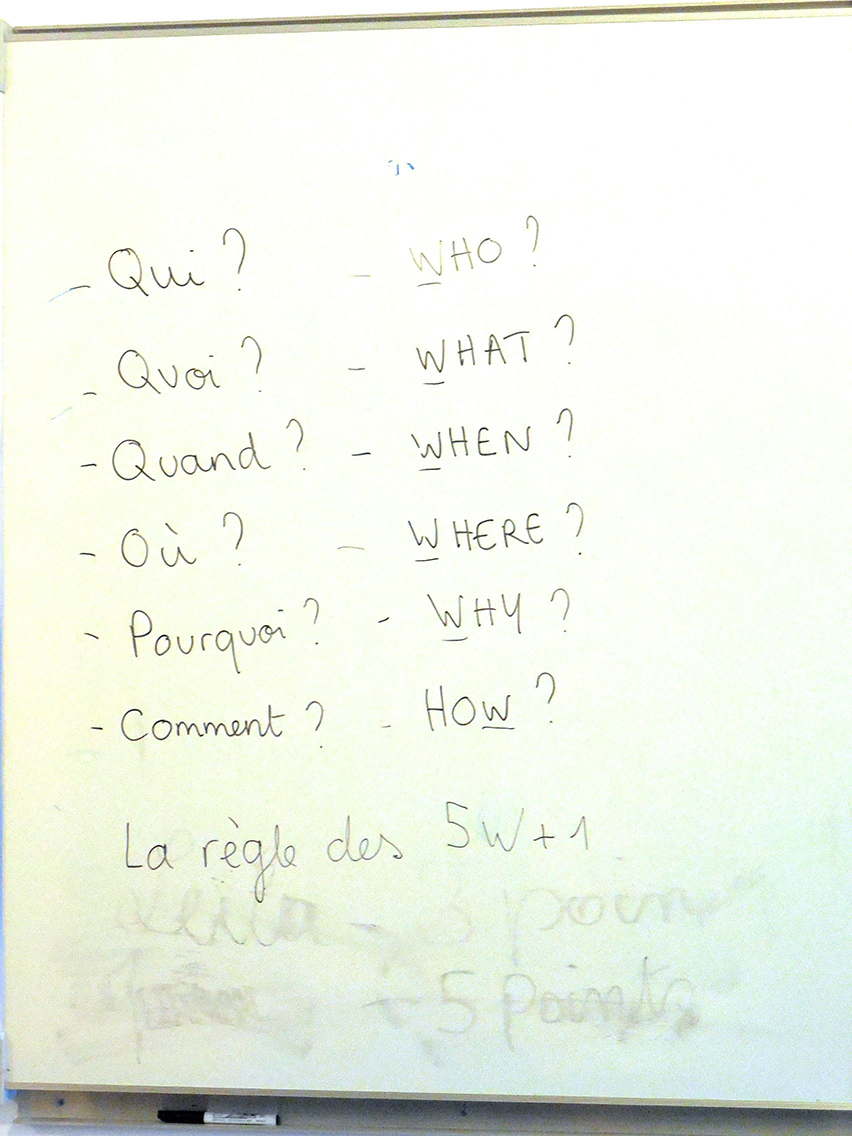 - Qui ? - WHO ?
- Quoi ? - WHAT ?
- Quand ? - WHEN ?
- Où ? - WHERE ?
- Pourquoi ? - WHY ?
- Comment ? - HOW ?
La règle des 5W+1
- 3 poin
- 5 points